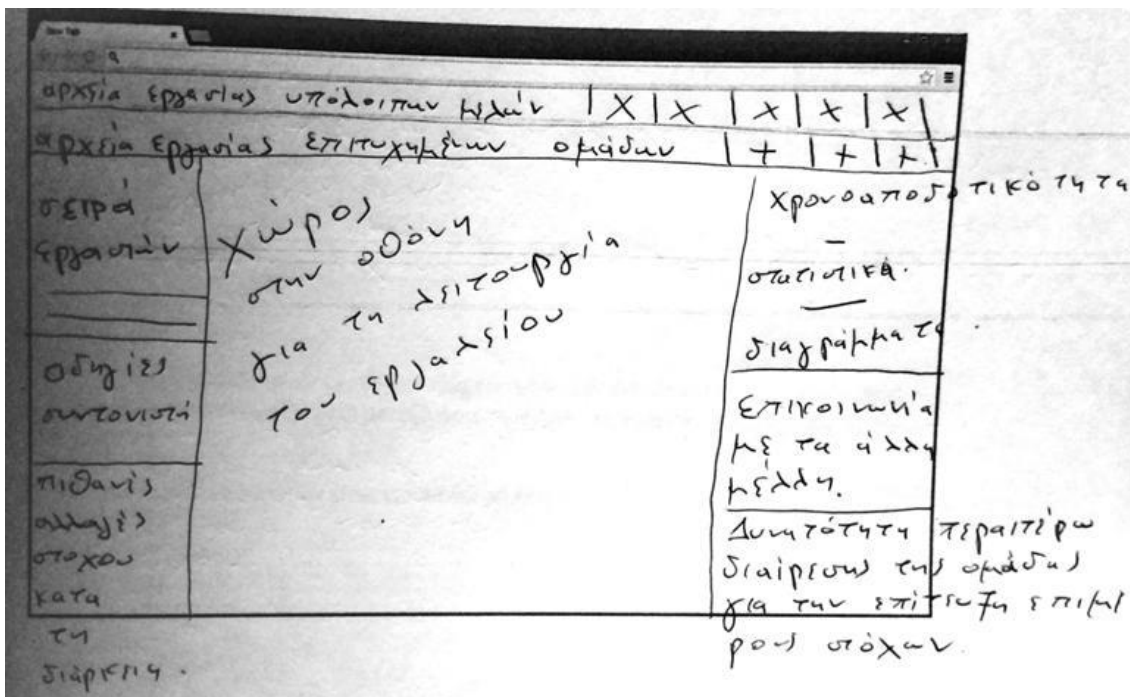 New Tab
αρχεία εργασίας υπόλοιπων μελών | X | X | X | X | X |
αρχεία εργασίας επιτυχημένων ομάδων | + | + | + |
σειρά
εργασιών
οδηγίες
συντονιστή
πιθανές
αλλαγές
στοχου
κατα
τη
διάρκεια.
Χώρος
στην οθόνη
για τη λειτουργία
του εργαλείου
χρονοαποδοτικότητα
–
στατιστικά.
—
διαγράμματα.
Επικοινωνία
με τα άλλα
μέλλη.
Δυνατότητα περαιτέρω
διαίρεσης της ομάδας
για την επίτευξη επιμέ
ρους στόχων.